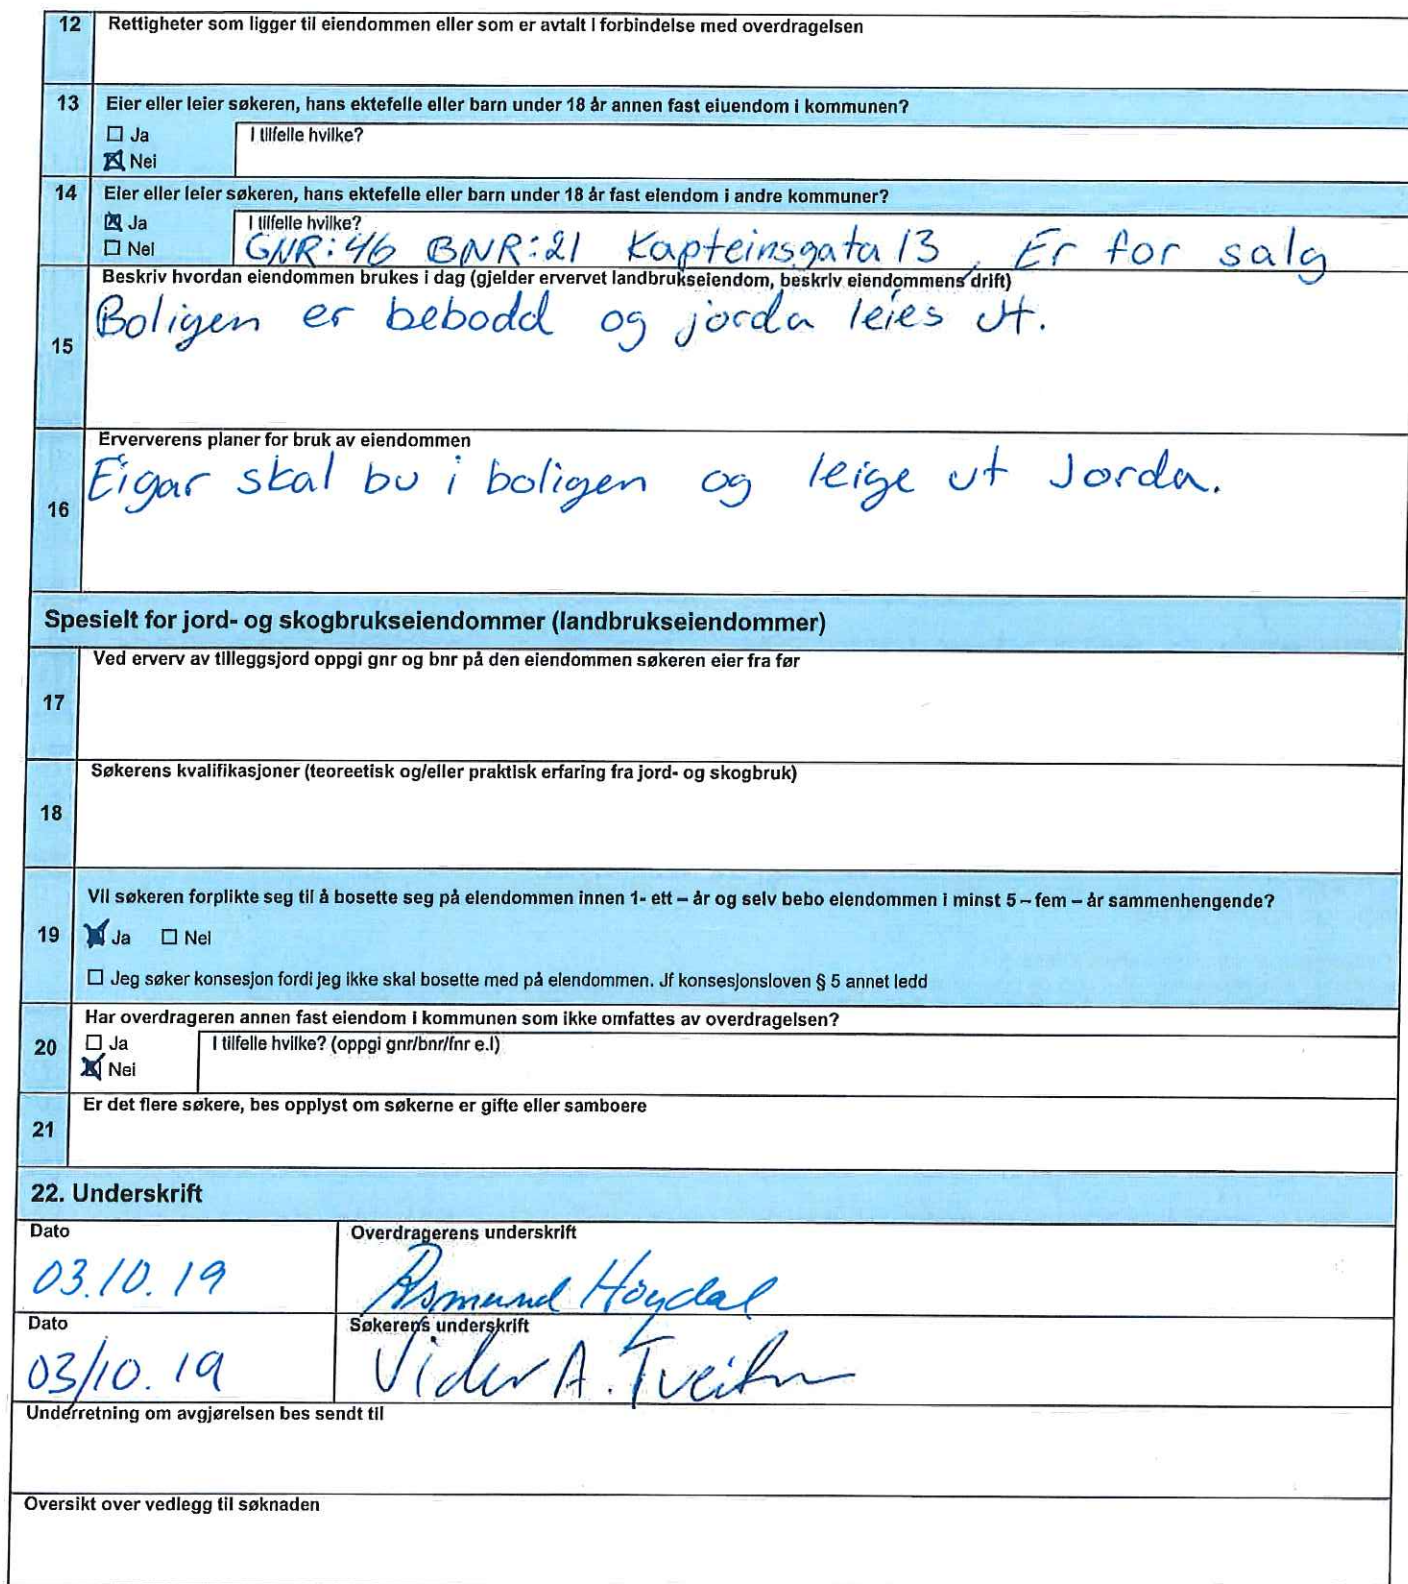 12 Rettigheter som ligger til eiendommen eller som er avtalt i forbindelse med overdragelsen
13 Eier eller leier søkeren, hans ektefelle eller barn under 18 år annen fast eiuendom i kommunen?
☐ Ja I tilfelle hvilke?
☒ Nei
14 Eier eller leier søkeren, hans ektefelle eller barn under 18 år fast eiendom i andre kommuner?
☒ Ja I tilfelle hvilke?
☐ Nei GNR:46 BNR:21 Kapteinsgata 13, Er for salg
Beskriv hvordan eiendommen brukes i dag (gjelder ervervet landbrukseiendom, beskriv eiendommens drift)
15 Boligen er bebodd og jorda leies ut.
Erververens planer for bruk av eiendommen
16 Eigar skal bu i boligen og leige ut Jorda.
Spesielt for jord- og skogbrukseiendommer (landbrukseiendommer)
Ved erverv av tilleggsjord oppgi gnr og bnr på den eiendommen søkeren eier fra før
17
Søkerens kvalifikasjoner (teoreetisk og/eller praktisk erfaring fra jord- og skogbruk)
18
Vil søkeren forplikte seg til å bosette seg på eiendommen innen 1- ett – år og selv bebo eiendommen i minst 5 – fem – år sammenhengende?
19 ☒ Ja ☐ Nei
☐ Jeg søker konsesjon fordi jeg ikke skal bosette med på eiendommen. Jf konsesjonsloven § 5 annet ledd
Har overdrageren annen fast eiendom i kommunen som ikke omfattes av overdragelsen?
20 ☐ Ja I tilfelle hvilke? (oppgi gnr/bnr/fnr e.l)
☒ Nei
Er det flere søkere, bes opplyst om søkerne er gifte eller samboere
21
22. Underskrift
Dato Overdragerens underskrift
03.10.19 Åsmund Høydal
Dato Søkerens underskrift
03/10.19 Vidar A.
Underretning om avgjørelsen bes sendt til
Oversikt over vedlegg til søknaden